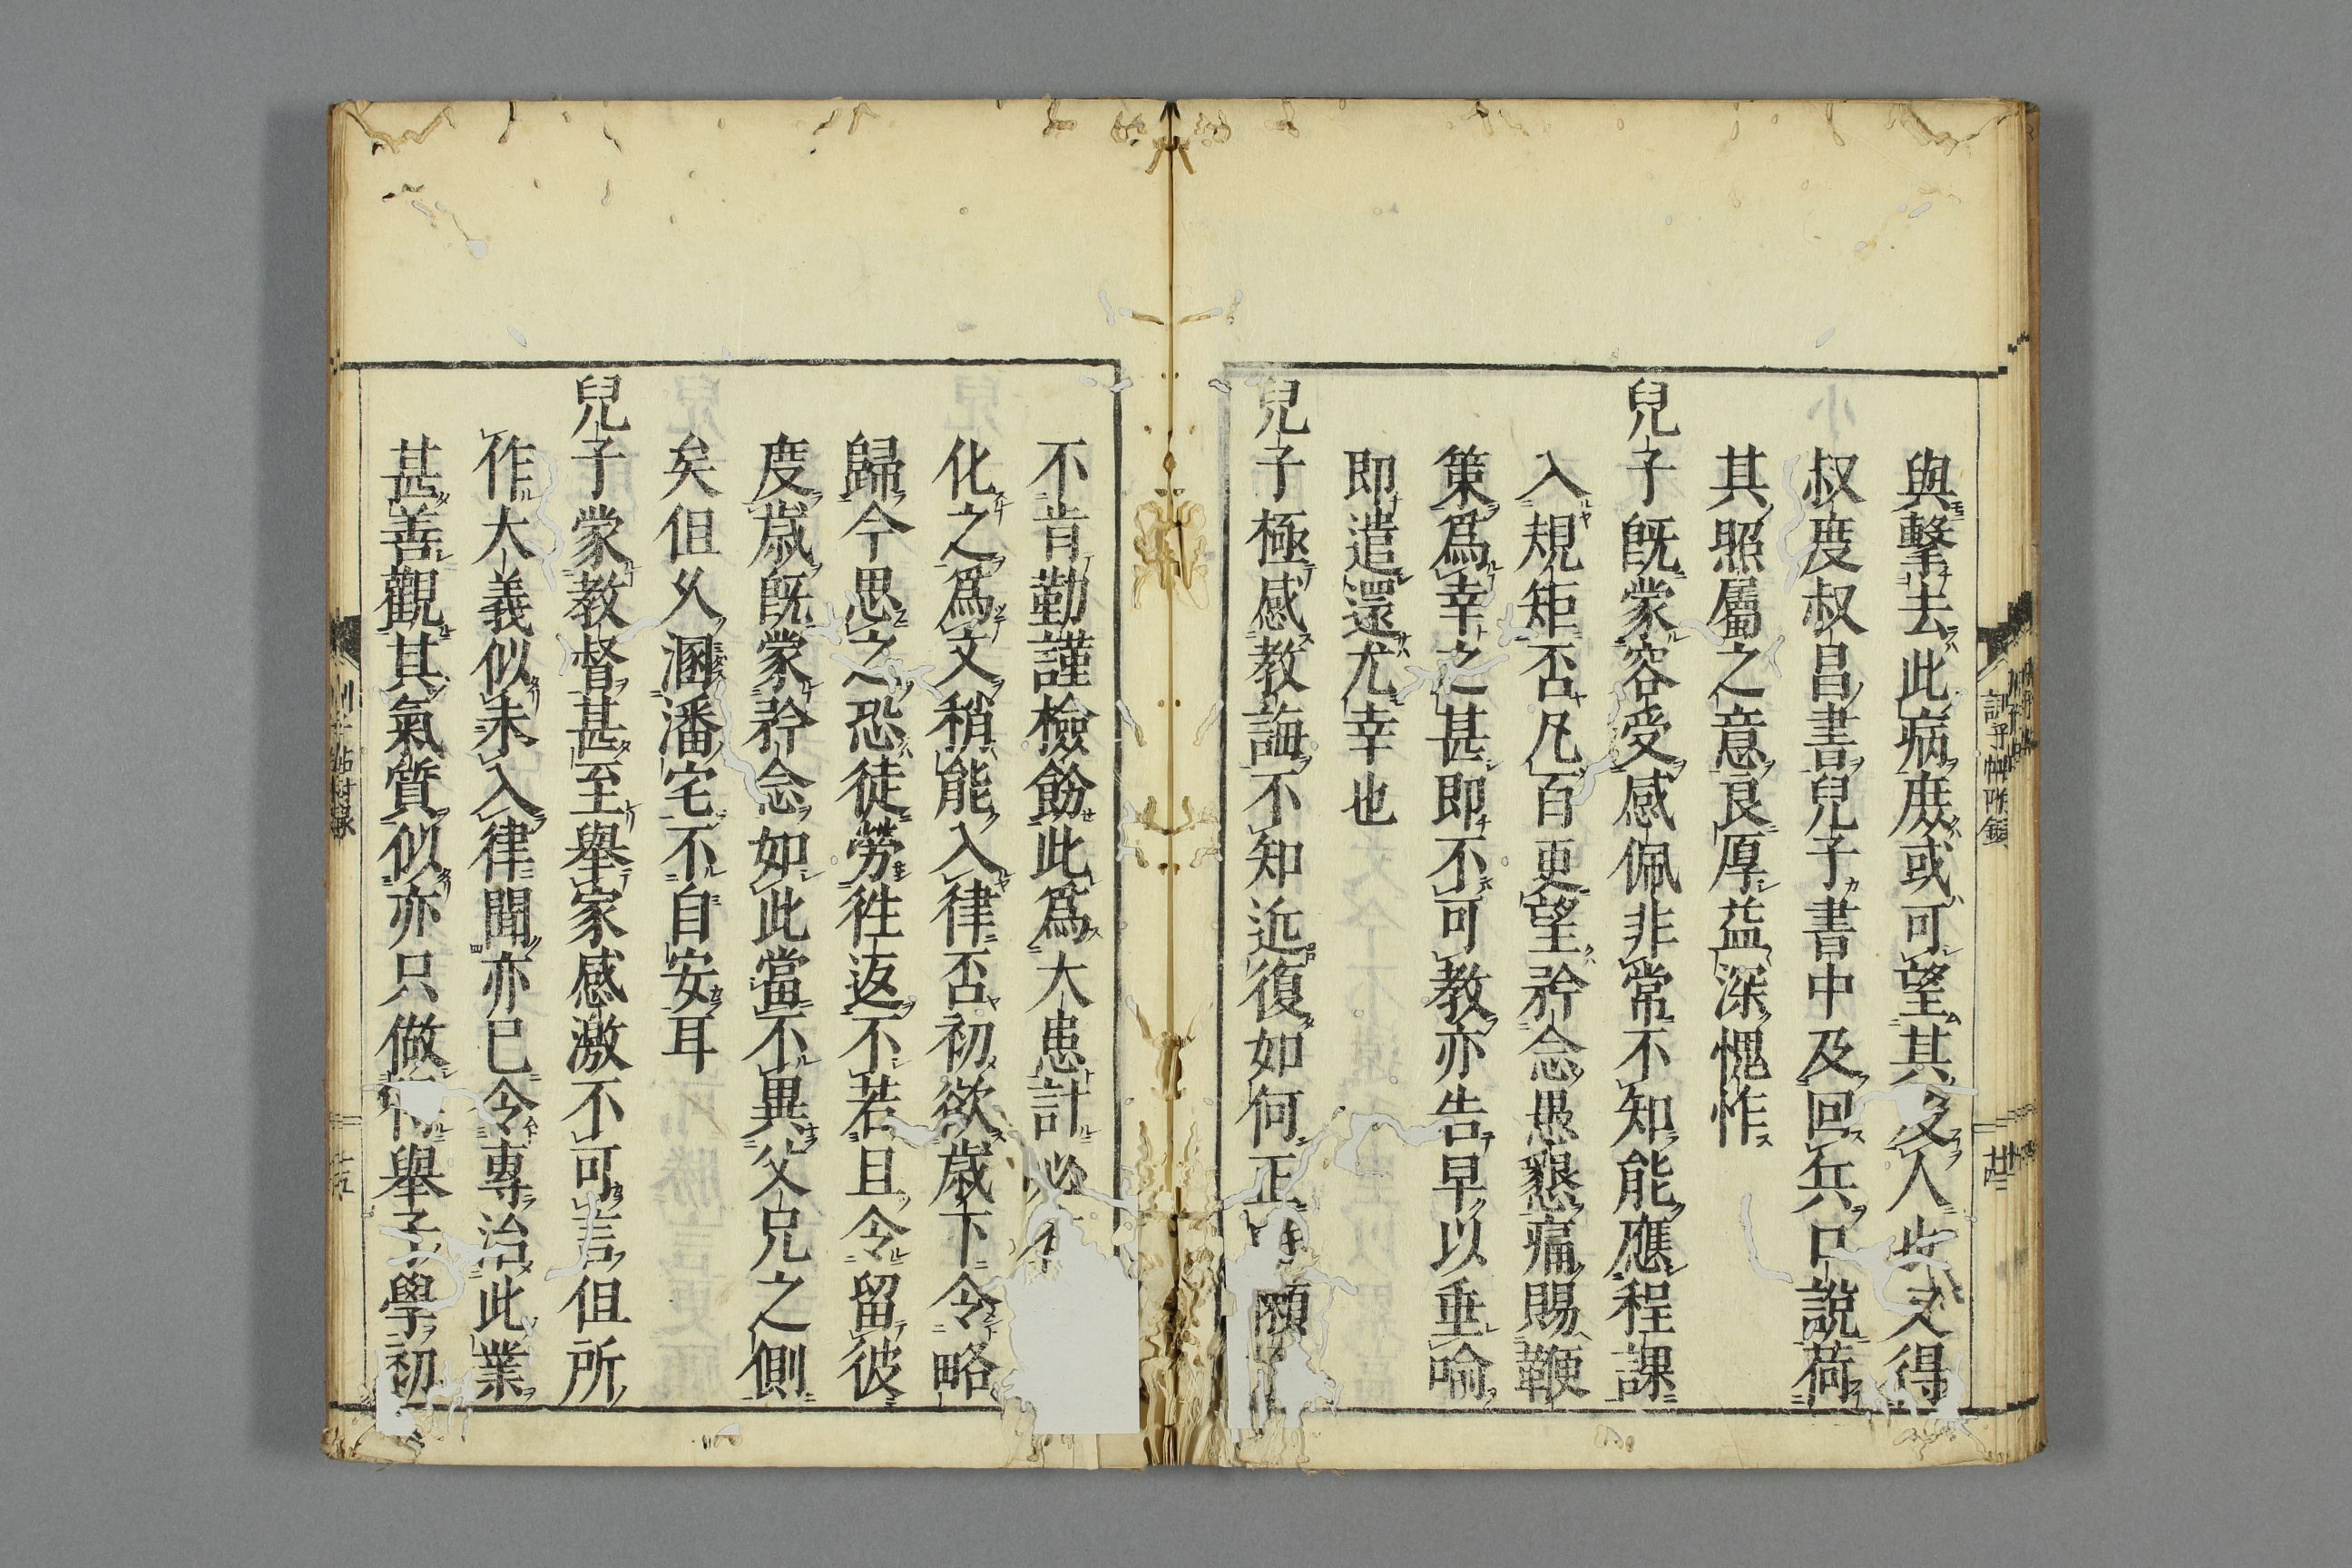 與擊去此病庻或可望其爻人此又得
叔度叔昌書兒子書中及回兵只說荷
其照屬之意良厚益深愧怍
兒子旣蒙容受感佩非常不知能應程課
入規矩否凡百更望矜念愚懇痛賜鞭
策爲幸之甚卽不可教亦告早以垂喻
卽遣還尤幸也
兒子極感教誨不知近復如何正唯頑
不肯勤謹檢飭此爲大患計必
化之爲文稍能入律否初欲歲下令略
歸今思之恐徒勞徃返不若且令留彼
度歲旣蒙矜念如此當不異父兄之側
矣但久溷潘宅不自安耳
兒子蒙教督甚至舉家感激不可言但所
作大義似未入律聞亦已令專治此業
甚善觀其氣質似亦只做舉子學初
訓子帖附錄
廿四